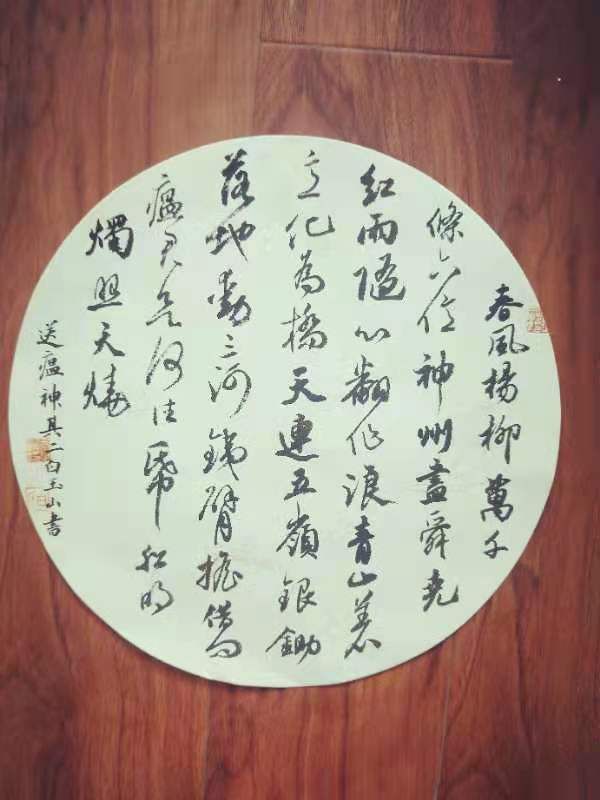 春风楊柳萬千
條六億神州盡舜堯
紅雨隨心翻作浪青山著
意化為橋天連五嶺銀鋤
落地動三河鐵臂搖借問
瘟君欲何往紙船明
燭照天燒
送瘟神其二白玉山書